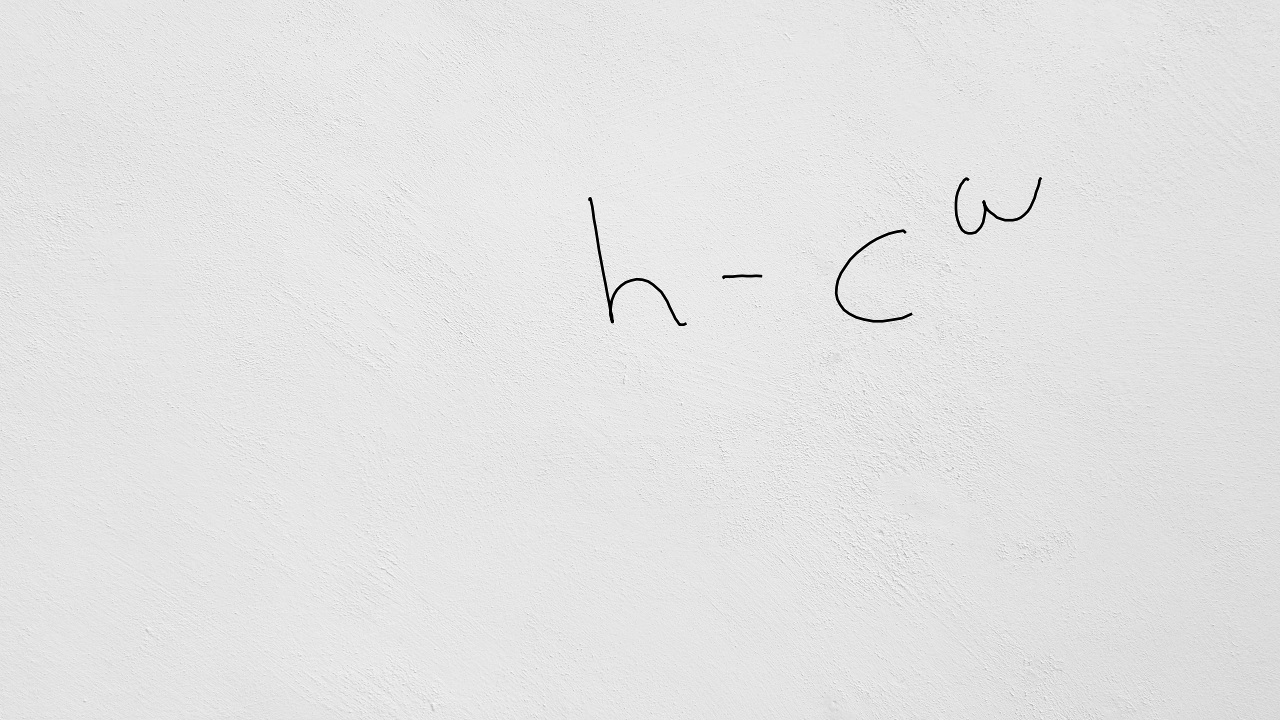 h - c^ω